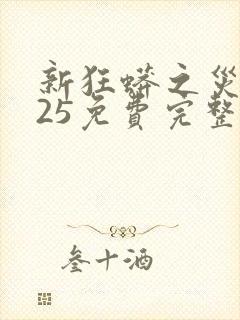 新狂蟒之災
25免費完整
叁十酒